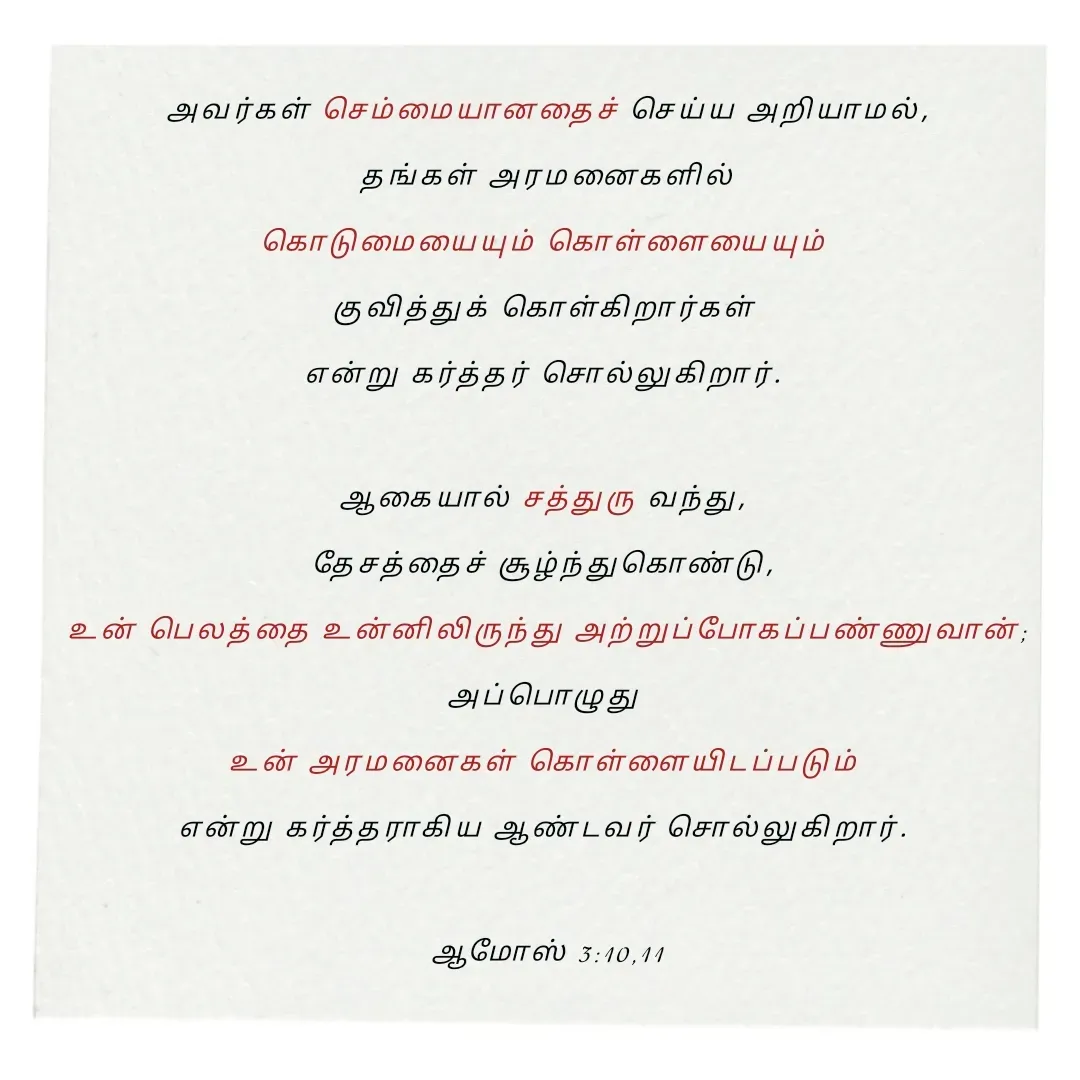 அவர்கள் செம்மையானதைச் செய்ய அறியாமல்,
தங்கள் அரமனைகளில்
கொடுமையையும் கொள்ளையையும்
குவித்துக் கொள்கிறார்கள்
என்று கர்த்தர் சொல்லுகிறார்.
ஆகையால் சத்துரு வந்து,
தேசத்தைச் சூழ்ந்துகொண்டு,
உன் பெலத்தை உன்னிலிருந்து அற்றுப்போகப்பண்ணுவான்;
அப்பொழுது
உன் அரமனைகள் கொள்ளையிடப்படும்
என்று கர்த்தராகிய ஆண்டவர் சொல்லுகிறார்.
ஆமோஸ் 3:10,11